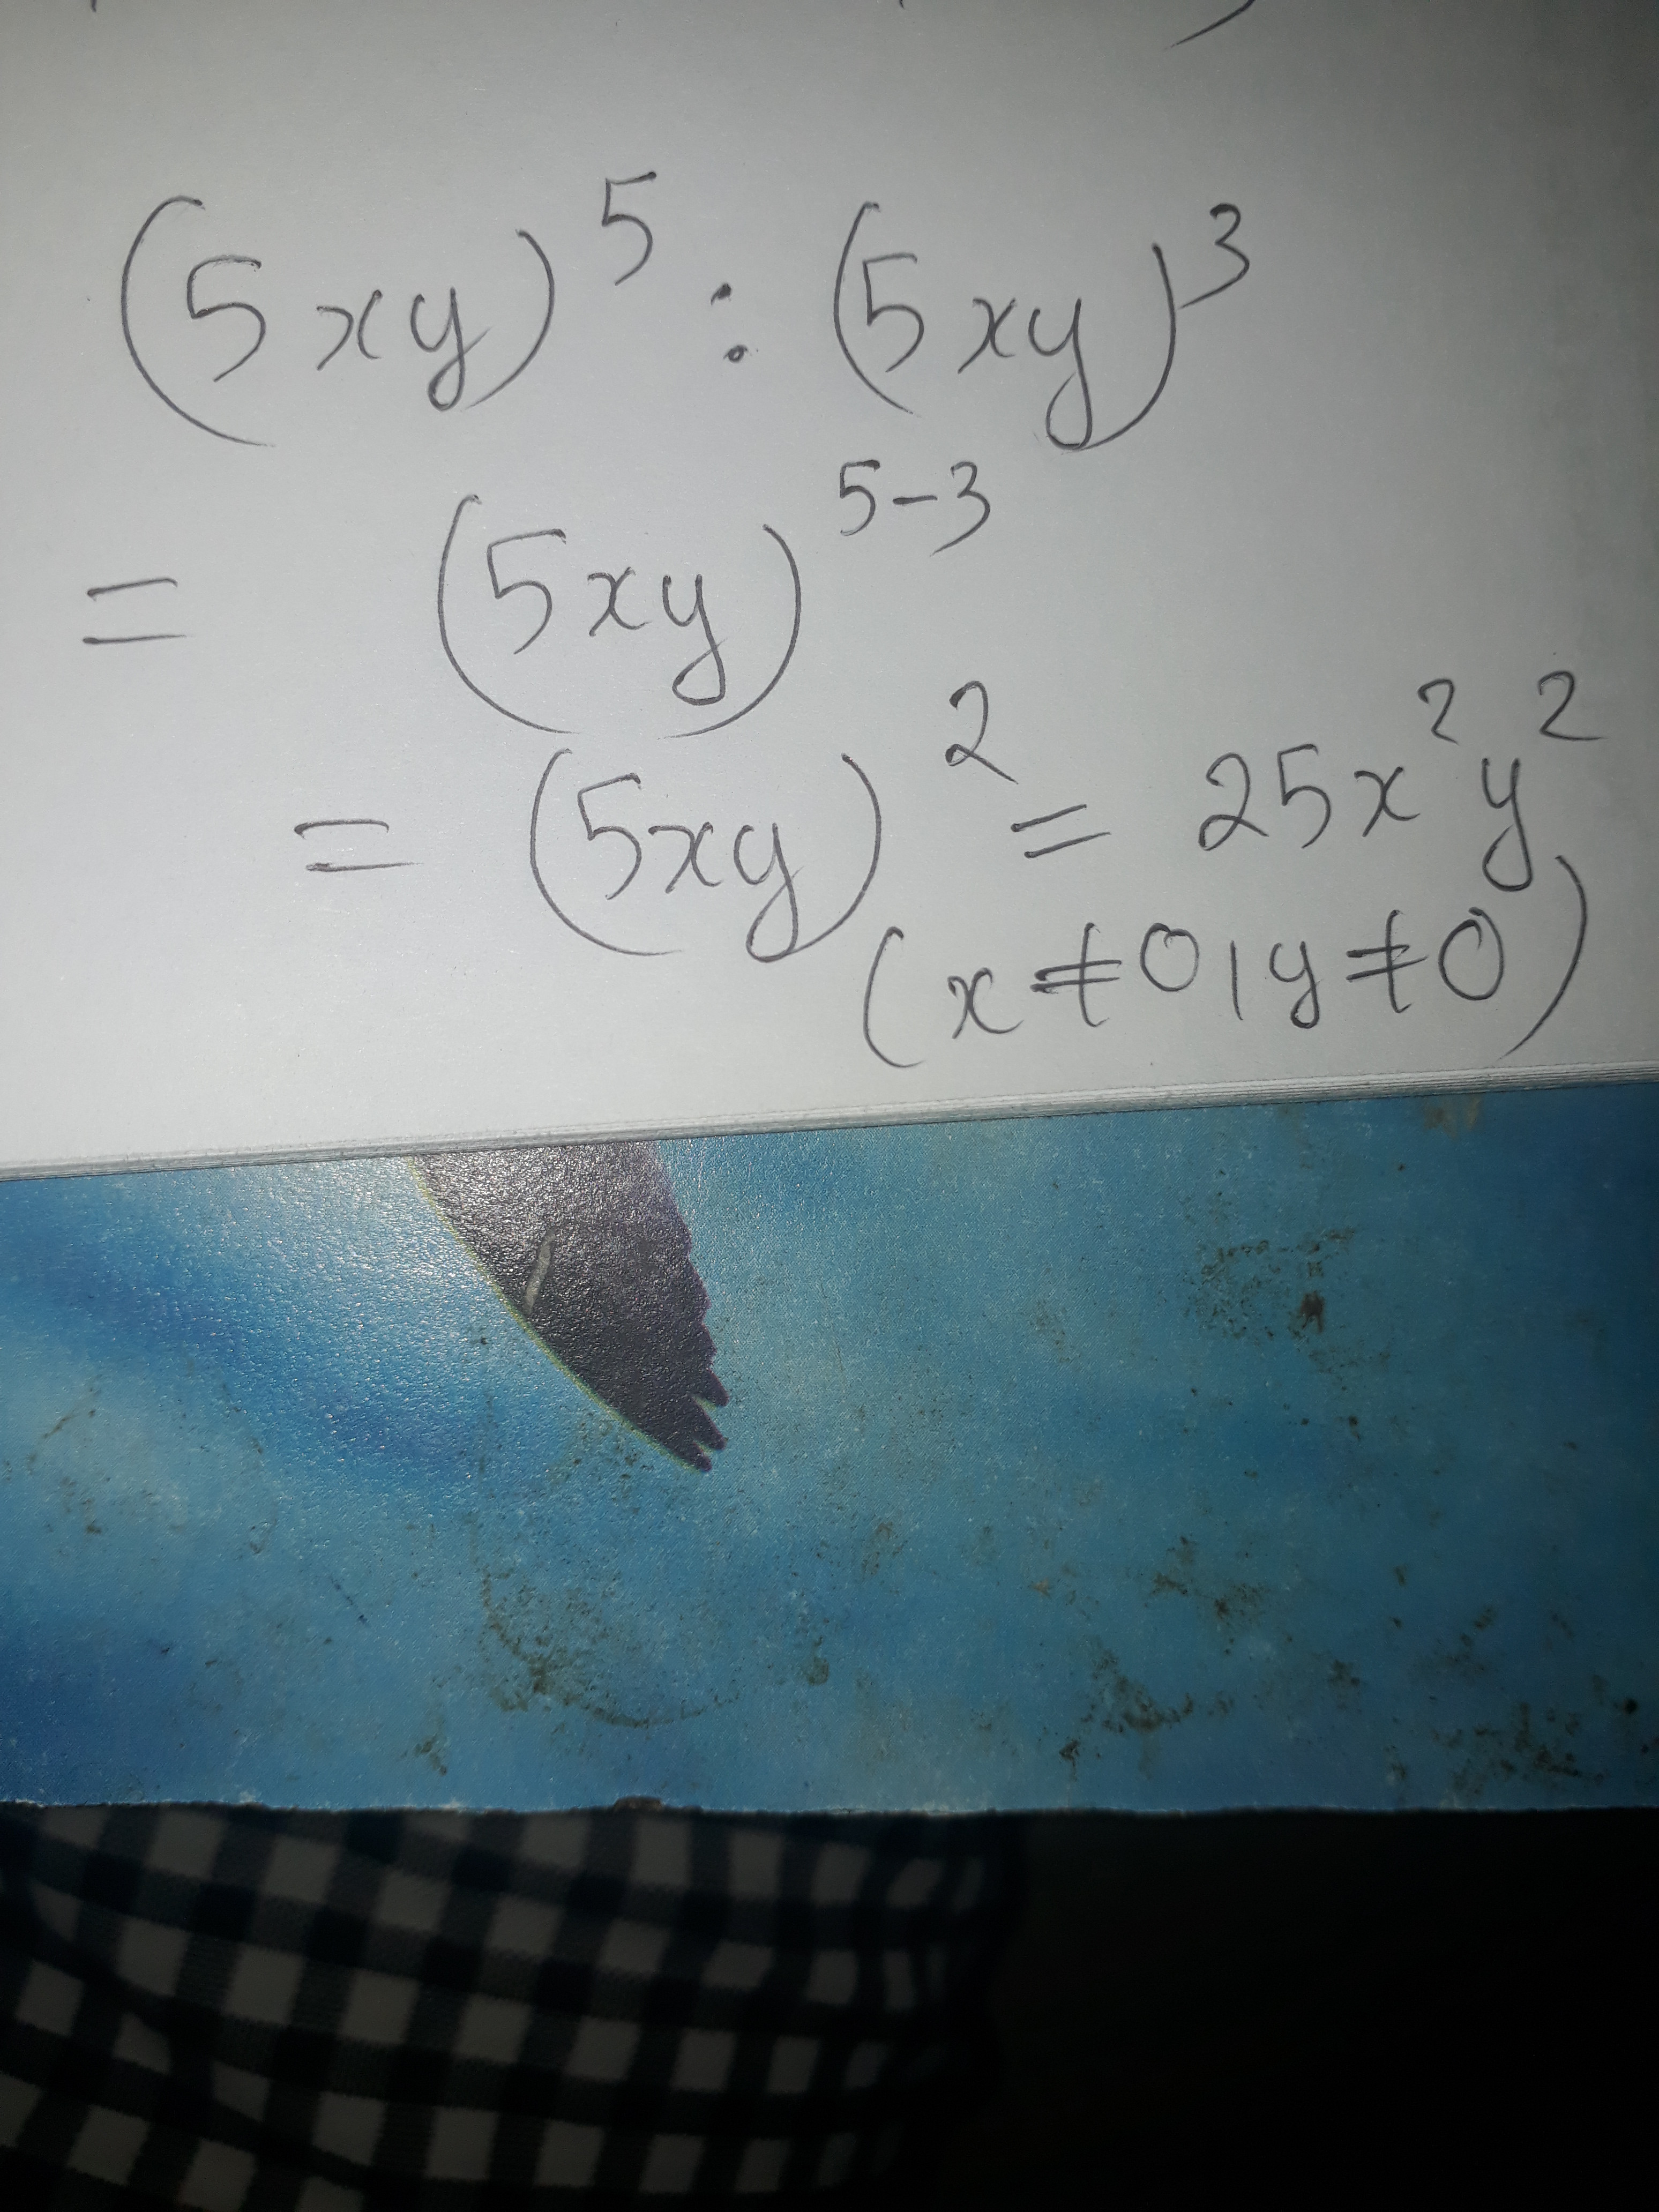 (5xy)⁵ : (5xy)³
= (5xy)⁵⁻³
= (5xy)² = 25x²y²
(x≠0, y≠0)